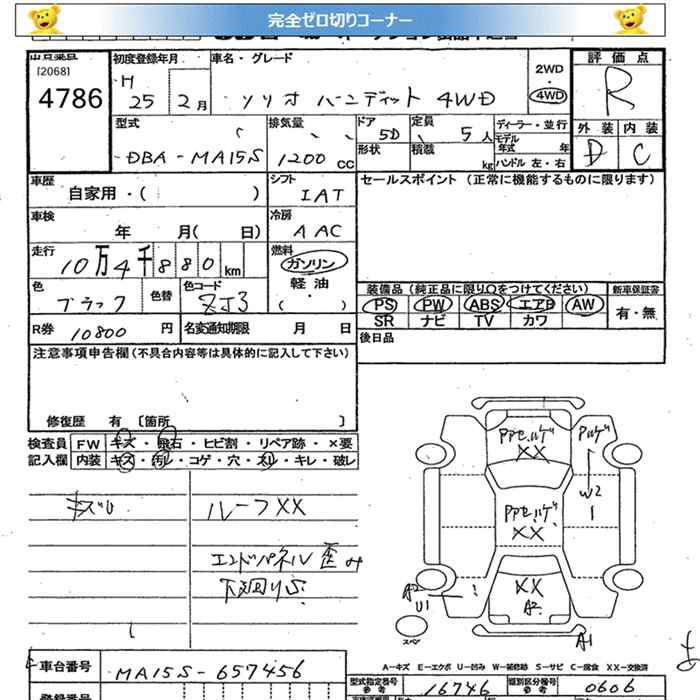 完全ゼロ切りコーナー
出品番号
[2068]
4786
初度登録年月
H
25 2月
車名・グレード
ソリオ バンディット 4WD
2WD
・
4WD
評価点
R
外装 内装
D C
型式
DBA-MA15S
排気量
1200 CC
ドア
5D
形状
定員
5人
積載
kg
ディーラー・並行
モデル
年式 年
ハンドル 左・右
車歴
自家用・( )
シフト
IAT
車検
年 月( 日)
冷房
AAC
走行
10万4千880km
燃料
ガソリン
軽油
( )
色
ブラック
色替
色コード
ZJ3
R券 10800 円
名変通知期限 月 日
セールスポイント (正常に機能するものに限ります)
装備品(純正品に限りΩをつけてください)
新車保証書
PS PW ABS エアB AW
有・無
SR ナビ TV カワ
後日品
注意事項申告欄(不具合内容等は具体的に記入して下さい)
修復歴 有 〔箇所 〕
検査員 FW キズ・飛石・ヒビ割・リペア跡・×要
記入欄 内装 キズ・汚レ・コゲ・穴・スレ・キレ・破レ
ルーフXX
エンドパネル歪み
下廻りS
XX
W2
1
XX
XX
A2
A2
U1
スペア
A1
A-キズ E-エクボ U-凹み W-補修跡 S-サビ C-腐食 XX-交換済
車台番号
MA15S-657456
型式指定番号
参考
16746
類別区分番号
参考
0606
登録番号